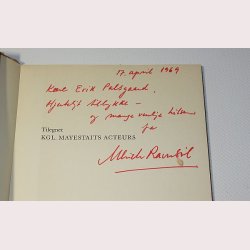 17. april 1969
Kære Erik Palsgaard.
Hjerteligt tillykke –
og mange venlige hilsner
fra
Tilegnet
KGL. MAYESTAITS ACTEURS
Ulrich Ravnbøl